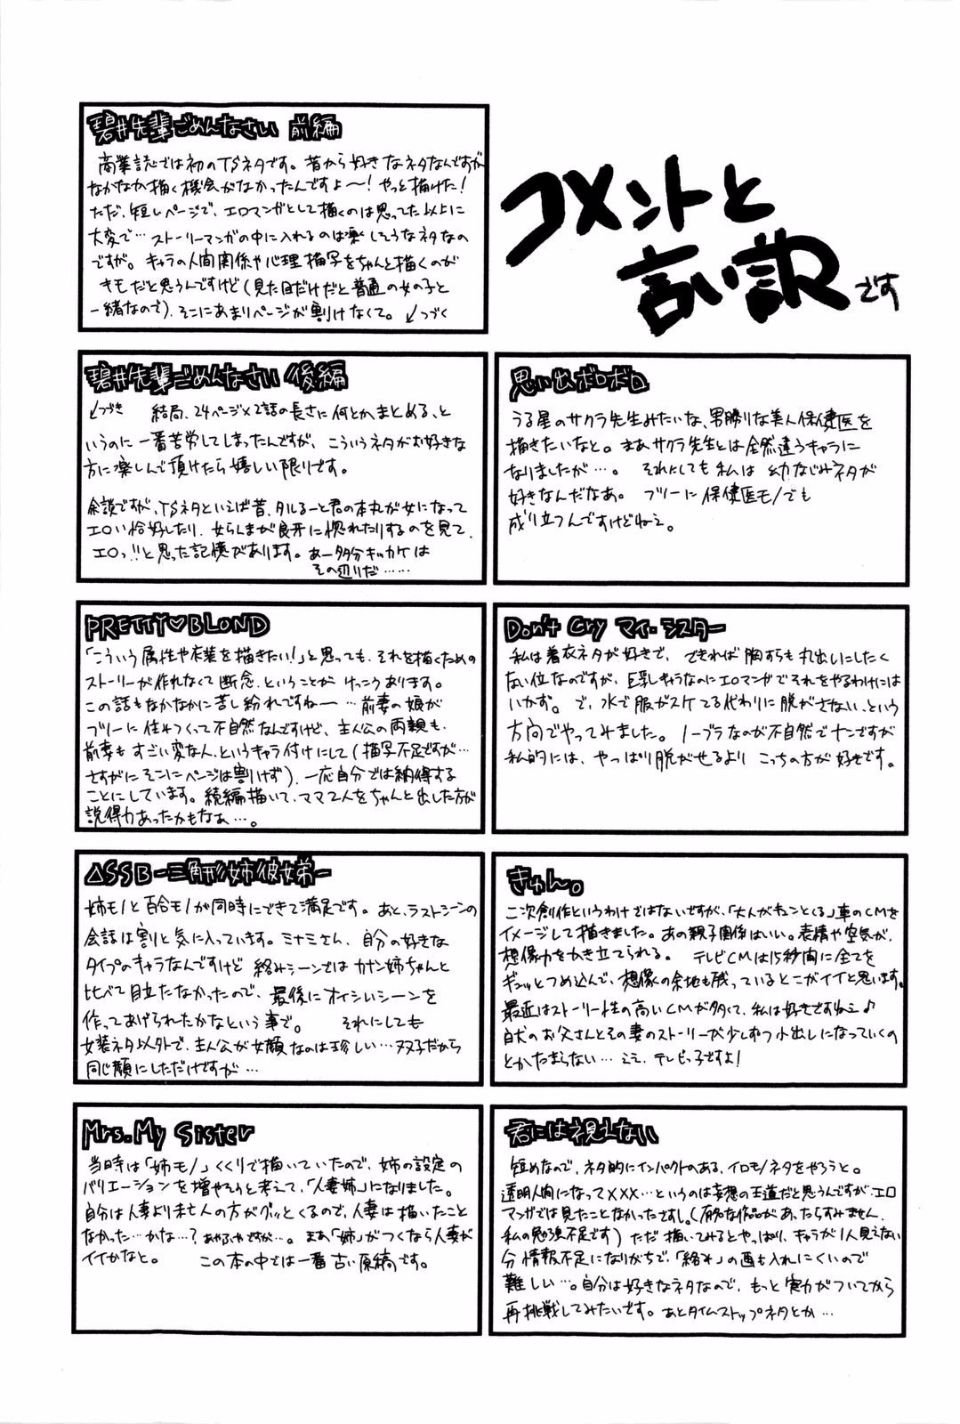 コメントと
言い訳です
碧井先輩ごめんなさい 前編
商業誌では初のTSネタです。昔から好きなネタなんですが
なかなか描く機会がなかったんですよ〜!やっと描けた!
ただ、短いページで、エロマンガとして描くのは思ってた以上に
大変で…ストーリーマンガの中に入れるのは楽しそうなネタなの
ですが。キャラの人間関係や心理描写をちゃんと描くのが
キモだと思うんですけど(見た目だけだと普通の女の子と
一緒なので)、そこにあまりページが割けなくて。↙つづく
碧井先輩ごめんなさい 後編
↙つづき 結局、24ページ×2話の長さに何とかまとめる、と
いうのに一番苦労してしまったんですが、こういうネタがお好きな
方に楽しんで頂けたら嬉しい限りです。
余談ですが、TSネタといえば昔、タルるート君の本丸が女になって
エロい恰好したり、女らんまが良牙に惚れたりするのを見て、
エロっ!!と思った記憶があります。あー多分キッカケは
その辺りだ……
思い出ボロボロ
うる星のサクラ先生みたいな、男勝りな美人保健医を
描きたいなと。まあサクラ先生とは全然違うキャラに
なりましたが…。それにしても私は幼なじみネタが
好きなんだなあ。フツーに保健医モノでも
成り立つんですけどねえ。
PRETTY♡BLOND
「こういう属性や衣装を描きたい!」と思っても、それを描くための
ストーリーが作れなくて断念、ということがけっこうあります。
この話もなかなかに苦し紛れですねー…前妻の娘が
フツーに住みつくって不自然なんですけど、主人公の両親も、
前妻もすごい変な人、というキャラ付けにして(描写不足ですが…
さすがにそこにページは割けず)、一応自分では納得する
ことにしています。続編描いて、ママ2人をちゃんと出した方が
説得力あったかもなぁ…。
Don't Cry マイ・シスター
私は着衣ネタが好きで、できれば胸すらも丸出しにしたく
ない位なのですが、巨乳キャラなのにエロマンガでそれをやるわけには
いかず。で、水で服がスケてる代わりに脱がさない、という
方向でやってみました。ノーブラなのが不自然でナンですが
私的には、やっぱり脱がせるよりこっちの方が好きです。
△SSB-三角形姉彼女弟-
姉モノと百合モノが同時にできて満足です。あと、ラストシーンの
会話は割と気に入っています。ミナミさん、自分の好きな
タイプのキャラなんですけど絡みシーンではカナン姉ちゃんと
比べて目立たなかったので、最後にオイシいシーンを
作ってあげられたかなという事で。それにしても
女装ネタ以外で、主人公が女顔なのは珍しい…双子だから
同じ顔にしただけですが…
きゅん。
二次創作というわけではないですが、「大人がキュンとくる」車のCMを
イメージして描きました。あの親子関係はいい。表情や空気が、
想像力をかき立てられる。テレビCMは15秒間に全てを
ギュッとつめ込んで、想像の余地も残っているとこがイイと思います。
最近はストーリー性の高いCMが多くて、私は好きですねえ♪
白犬のお父さんとその妻のストーリーが少しずつ小出しになっていくの
とかたまらない…ええ、テレビっ子ですよ!
Mrs. My Sister
当時は「姉モノ」くくりで描いていたので、姉の設定の
バリエーションを増やそうと考えて、「人妻姉」になりました。
自分は人妻より未亡人の方がグッとくるので、人妻は描いたこと
なかった…かな…?あやふやですが…。まあ「姉」がつくなら人妻が
イイかなと。この本の中では一番古い原稿です。
君には視えない
短めなので、ネタ的にインパクトのある、イロモノネタをやろうと。
透明人間になって×××…というのは妄想の王道だと思うんですが、エロ
マンガでは見たことなかったですし。(有名な作品があったらすみません、
私の勉強不足です)ただ描いてみるとやっぱり、キャラが1人見えない
分情報不足になりがちで、「絡み」の画も入れにくいので
難しい…。自分は好きなネタなので、もっと実力がついてから
再挑戦してみたいです。あとタイムストップネタとか…